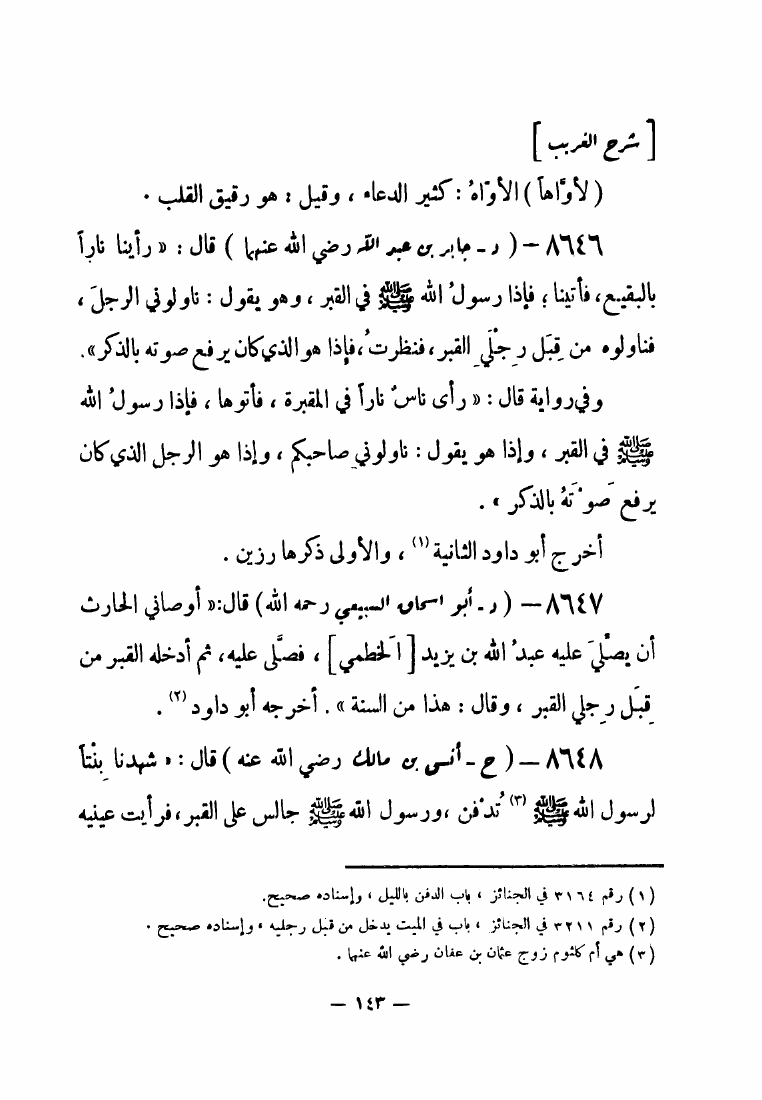 [ شرح الغريب ]
( لأوَّاهاً ) الأوّاهُ : كثير الدعاء ، وقيل : هو رقيق القلب .
٨٦٤٦ – ( د ـ جابر بن عبد الله رضي الله عنهما ) قال : « رأينا ناراً
بالبقيع ، فأتينا ؛ فإذا رسولُ الله ﷺ في القبر ، وهو يقول : ناولوني الرجلَ ،
فناولوه من قِبَل رِجْلَي القبر ، فنظرتُ ، فإذا هو الذي كان يرفع صوته بالذكر » .
وفي رواية قال : « رأى ناسٌ ناراً في المقبرة ، فأتوها ، فإذا رسولُ الله
ﷺ في القبر ، وإذا هو يقول : ناولوني صاحبكم ، وإذا هو الرجل الذي كان
يرفع صَوْتَهُ بالذكر » .
أخرج أبو داود الثانية (١) ، والأولى ذكرها رزين .
٨٦٤٧ – ( د ـ أبو اسحاق السبيعي رحمه الله ) قال : « أوصاني الحارث
أن يصلِّيَ عليه عبدُ الله بن يزيد [ الَخطمي ] ، فصلَّى عليه ، ثم أدخله القبر من
قِبَل رِجلي القبر ، وقال : هذا من السنة » . أخرجه أبو داود (٢) .
٨٦٤٨ – ( خ ـ أنس بن مالك رضي الله عنه ) قال : « شهدنا بِنْتاً
لرسول الله ﷺ (٣) تُدْفن ، ورسول الله ﷺ جالس على القبر ، فرأيت عينيه
(١) رقم ٣١٦٤ في الجنائز ، باب الدفن بالليل ، وإسناده صحيح .
(٢) رقم ٣٢١١ في الجنائز ، باب في الميت يدخل من قبل رجليه ، وإسناده صحيح .
(٣) هي أم كلثوم زوج عثمان بن عفان رضي الله عنهما .
– ١٤٣ –